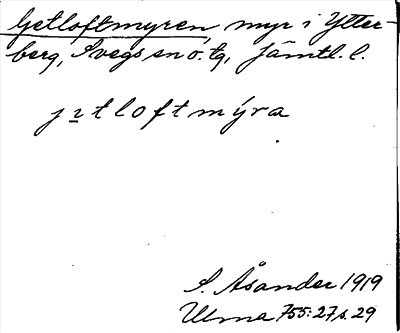 Getloftmyren, myr i Ytter-
berg, Svegs sn o. tg, Jämtl. l.
jɪtloftmýra
S. Åsander 1919
Ulma 755:27 s. 29